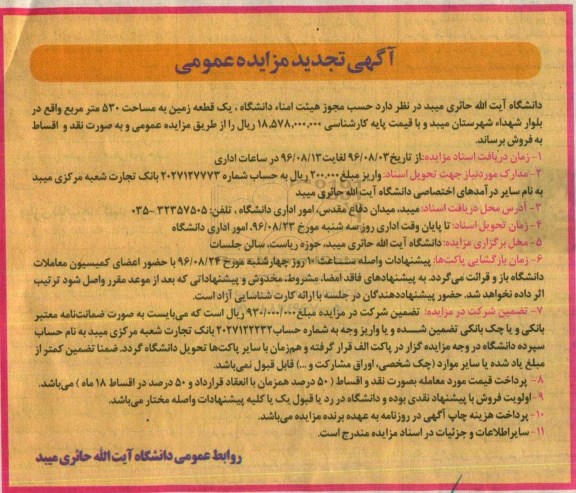 آگهی تجدید مزایده عمومی
دانشگاه آیت الله حائری میبد در نظر دارد حسب مجوز هیئت امناء دانشگاه ، یک قطعه زمین به مساحت ۵۳۰ متر مربع واقع در
بلوار شهداء شهرستان میبد و با قیمت پایه کارشناسی ۱۸,۵۷۸,۰۰۰,۰۰۰ ریال را از طریق مزایده عمومی و به صورت نقد و اقساط
به فروش برساند.
۱- زمان دریافت اسناد مزایده:از تاریخ۹۶/۰۸/۰۳ لغایت۹۶/۰۸/۱۳ در ساعات اداری
۲- مدارک موردنیاز جهت تحویل اسناد: واریز مبلغ ۲۰۰,۰۰۰ ریال به حساب شماره ۲۰۲۷۱۲۷۷۷۳ بانک تجارت شعبه مرکزی میبد
به نام سایر درآمدهای اختصاصی دانشگاه آیت الله حائری میبد
۳- آدرس محل دریافت اسناد: میبد، میدان دفاع مقدس، امور اداری دانشگاه ، تلفن: ۳۲۳۵۷۵۰۵-۰۳۵
۴- زمان تحویل اسناد: تا پایان وقت اداری روز سه شنبه مورخ ۹۶/۰۸/۲۳، امور اداری دانشگاه
۵- محل برگزاری مزایده: دانشگاه آیت الله حائری میبد، حوزه ریاست، سالن جلسات
۶- زمان بازگشایی پاکت‌ها: پیشنهادات واصله ساعت ۱۰ روز چهارشنبه مورخ ۹۶/۰۸/۲۴ با حضور اعضای کمیسیون معاملات
دانشگاه باز و قرائت می‌گردد. به پیشنهادهای فاقد امضا، مشروط، مخدوش و پیشنهاداتی که بعد از موعد مقرر واصل شود ترتیب
اثر داده نخواهد شد. حضور پیشنهاددهندگان در جلسه با ارائه کارت شناسایی آزاد است.
۷- تضمین شرکت در مزایده: تضمین شرکت در مزایده مبلغ۹۳۰/۰۰۰/۰۰۰ ریال است که می‌بایست به صورت ضمانت‌نامه معتبر
بانکی و یا چک بانکی تضمین شـــده و یا واریز وجه به شماره حساب۲۰۲۷۱۲۲۲۳۲ بانک تجارت شعبه مرکزی میبد به نام حساب
سپرده دانشگاه در وجه مزایده گزار در پاکت الف قرار گرفته و هم‌زمان با سایر پاکت‌ها تحویل دانشگاه گردد. ضمنا تضمین کمتر از
مبلغ یاد شده یا سایر موارد (چک شخصی، اوراق مشارکت و ...) قابل قبول نمی‌باشد.
۸- پرداخت قیمت مورد معامله بصورت نقد و اقساط ( ۵۰ درصد همزمان با انعقاد قرارداد و ۵۰ درصد در اقساط ۱۸ ماه ) می‌باشد.
۹- اولویت فروش با پیشنهاد نقدی بوده و دانشگاه در رد یا قبول یک یا کلیه پیشنهادات واصله مختار می‌باشد.
۱۰- پرداخت هزینه چاپ آگهی در روزنامه به عهده برنده مزایده می‌باشد.
۱۱- سایر اطلاعات و جزئیات در اسناد مزایده مندرج است.
روابط عمومی دانشگاه آیت الله حائری میبد